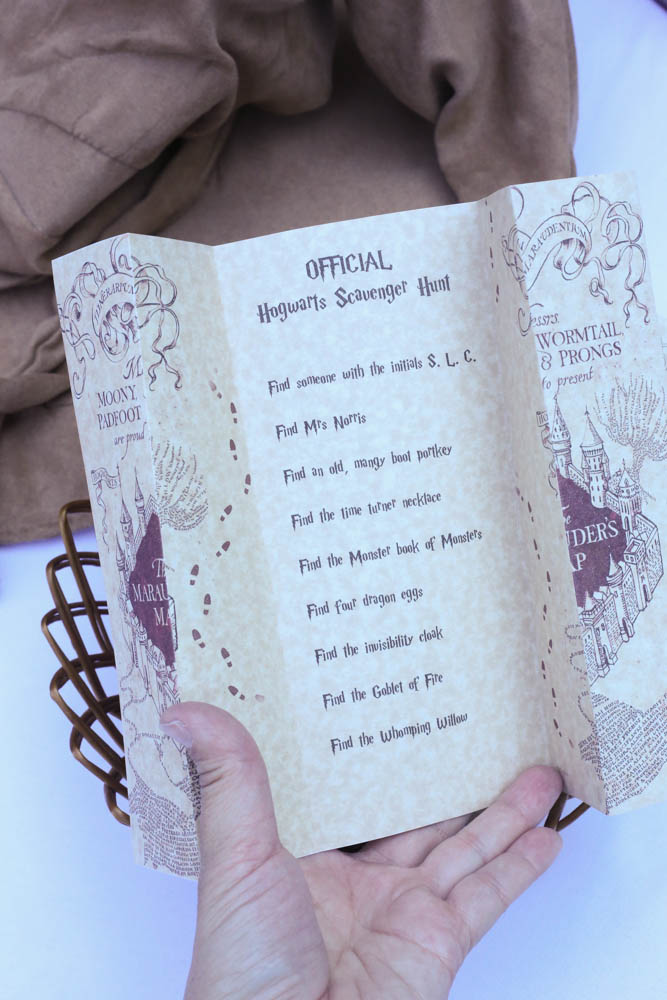 OFFICIAL
Hogwarts Scavenger Hunt
Find someone with the initials S. L. C.
Find Mrs Norris
Find an old, mangy boot portkey
Find the time turner necklace
Find the Monster book of Monsters
Find four dragon eggs
Find the invisibility cloak
Find the Goblet of Fire
Find the Whomping Willow
MOONY,
PADFOOT
are proud
MARAU
MA
WORMTAIL
& PRONGS
to present
DER'S
AP